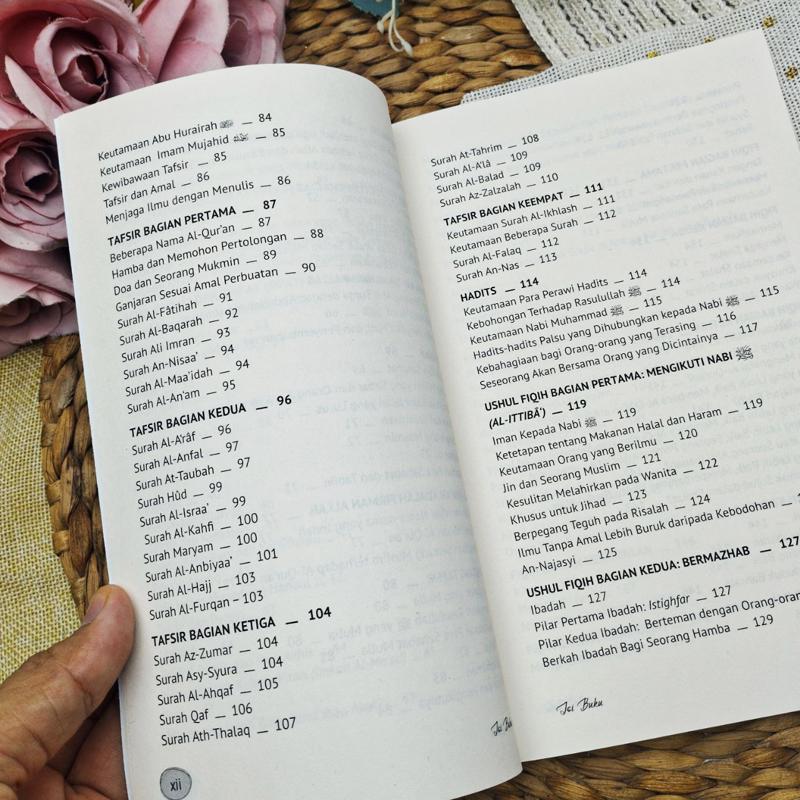 Keutamaan Abu Hurairah ﷺ — 84
Keutamaan Imam Mujahid — 85
Kewibawaan Tafsir — 85
Tafsir dan Amal — 86
Menjaga Ilmu dengan Menulis — 86
TAFSIR BAGIAN PERTAMA — 87
Beberapa Nama Al-Qur'an — 87
Hamba dan Memohon Pertolongan — 88
Doa dan Seorang Mukmin — 89
Ganjaran Sesuai Amal Perbuatan — 90
Surah Al-Fâtihah — 91
Surah Al-Baqarah — 92
Surah Ali Imran — 93
Surah An-Nisaa' — 94
Surah Al-Maa'idah — 94
Surah Al-An'am — 95
TAFSIR BAGIAN KEDUA — 96
Surah Al-A'râf — 96
Surah Al-Anfal — 97
Surah At-Taubah — 97
Surah Hûd — 99
Surah Al-Israa' — 99
Surah Al-Kahfi — 100
Surah Maryam — 100
Surah Al-Anbiyaa' — 101
Surah Al-Hajj — 103
Surah Al-Furqan – 103
TAFSIR BAGIAN KETIGA — 104
Surah Az-Zumar — 104
Surah Asy-Syura — 104
Surah Al-Ahqaf — 105
Surah Qaf — 106
Surah Ath-Thalaq — 107
xii
Isi Bu
Surah At-Tahrim — 108
Surah Al-A'lâ — 109
Surah Al-Balad — 109
Surah Az-Zalzalah — 110
TAFSIR BAGIAN KEEMPAT — 111
Keutamaan Surah Al-Ikhlash — 111
Keutamaan Beberapa Surah — 112
Surah Al-Falaq — 112
Surah An-Nas — 113
HADITS — 114
Keutamaan Para Perawi Hadits — 114
Kebohongan Terhadap Rasulullah ﷺ — 114
Keutamaan Nabi Muhammad ﷺ — 115
Hadits-hadits Palsu yang Dihubungkan kepada Nabi ﷺ — 115
Kebahagiaan bagi Orang-orang yang Terasing — 116
Seseorang Akan Bersama Orang yang Dicintainya — 117
USHUL FIQIH BAGIAN PERTAMA: MENGIKUTI NABI ﷺ
(AL-ITTIBÂ') — 119
Iman Kepada Nabi ﷺ — 119
Ketetapan tentang Makanan Halal dan Haram — 119
Keutamaan Orang yang Berilmu — 120
Jin dan Seorang Muslim — 121
Kesulitan Melahirkan pada Wanita — 122
Khusus untuk Jihad — 123
Berpegang Teguh pada Risalah — 124
Ilmu Tanpa Amal Lebih Buruk daripada Kebodohan —
An-Najasyi — 125
USHUL FIQIH BAGIAN KEDUA: BERMAZHAB — 127
Ibadah — 127
Pilar Pertama Ibadah: Istighfar — 127
Pilar Kedua Ibadah: Berteman dengan Orang-oran
Berkah Ibadah Bagi Seorang Hamba — 129
Isi Buku